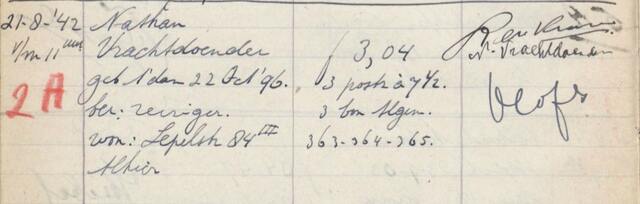 21-8-'42 Nathan
v/m 11 uur Vrachtdoender ƒ 3,04
geb A'dam 22 Oct '96. 3 post à 7½.
2A ber: reiziger. 3 bon Algem.
won: Lepelstr 84 III 363-364-365.
Alhier
N. Vrachtdoender